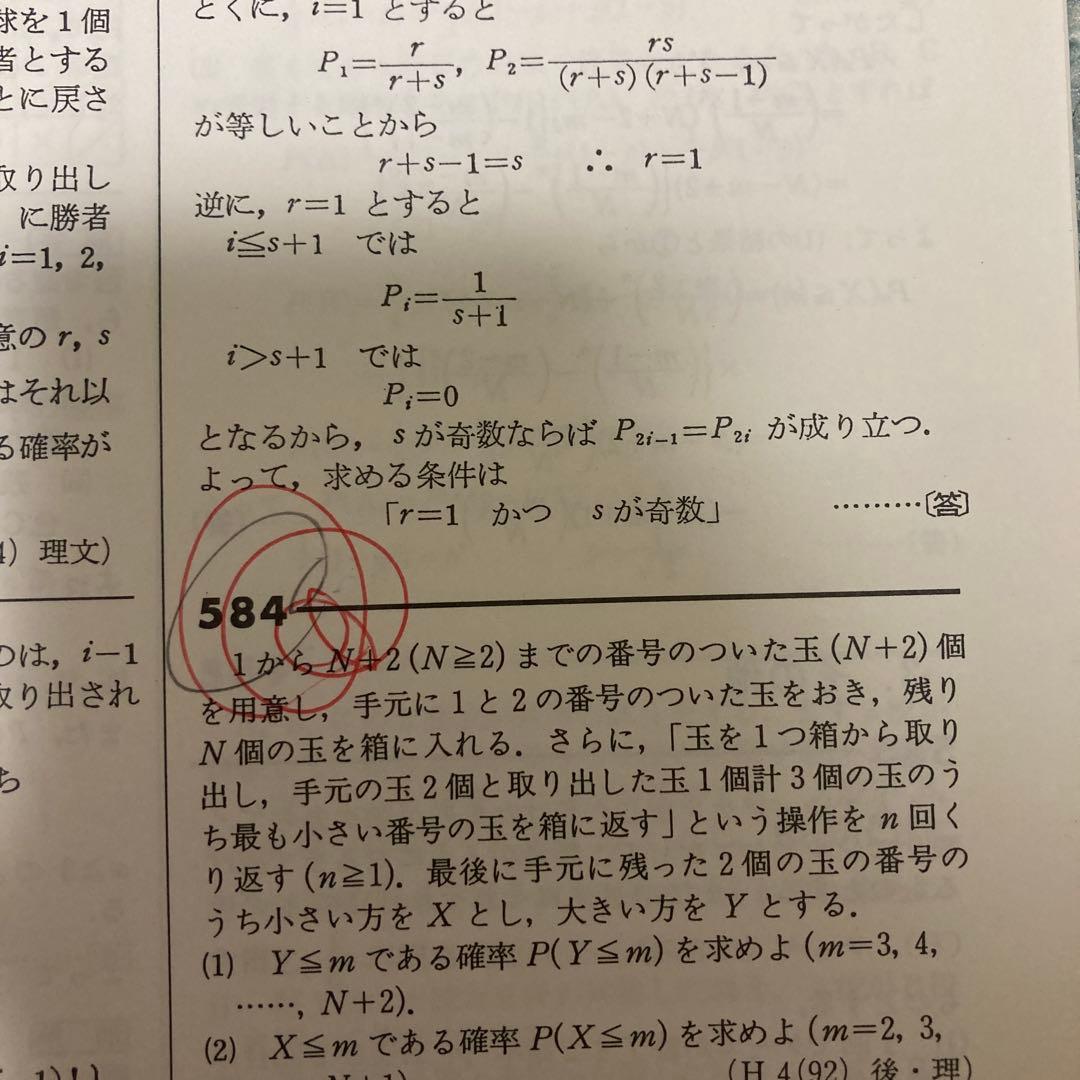 球を1個
者とする
とに戻さ
取り出し
に勝者
i=1, 2,
意の r, s
はそれ以
る確率が
4) 理文)
のは, i-1
取り出され
ち
とくに, i=1 とすると
P₁=r/(r+s), P₂=rs/((r+s)(r+s-1))
が等しいことから
r+s-1=s ∴ r=1
逆に, r=1 とすると
i≦s+1 では
Pᵢ=1/(s+1)
i>s+1 では
Pᵢ=0
となるから, s が奇数ならば P₂ᵢ₋₁=P₂ᵢ が成り立つ.
よって, 求める条件は
「r=1 かつ s が奇数」 ………〔答〕
584
1から N+2 (N≧2) までの番号のついた玉 (N+2) 個
を用意し, 手元に1と2の番号のついた玉をおき, 残り
N 個の玉を箱に入れる. さらに, 「玉を1つ箱から取り
出し, 手元の玉2個と取り出した玉1個計3個の玉のう
ち最も小さい番号の玉を箱に返す」という操作を n 回く
り返す (n≧1). 最後に手元に残った2個の玉の番号の
うち小さい方を X とし, 大きい方を Y とする.
(1) Y≦m である確率 P(Y≦m) を求めよ (m=3, 4,
……, N+2).
(2) X≦m である確率 P(X≦m) を求めよ (m=2, 3,
(H 4(92) 後・理)